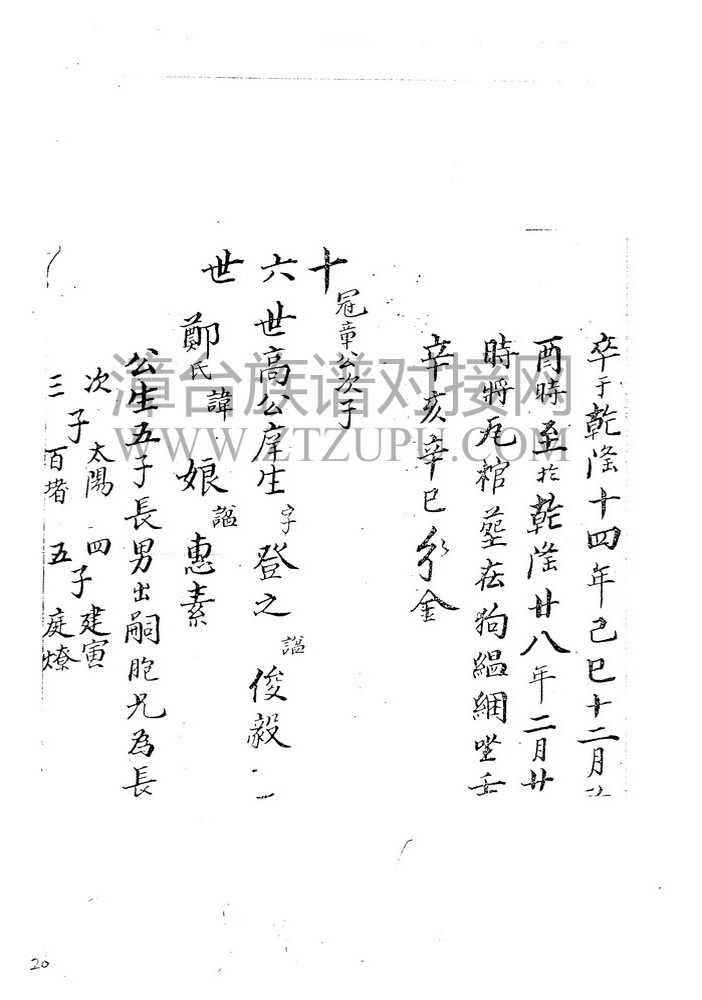 卒于乾隆十四年己巳十二月
酉時至於乾隆廿八年二月廿
時將瓦棺塟在狗緼綑坐壬
辛亥辛巳分金
十六世
冠章公次子
世高公庠生字登之 謚俊毅
鄭氏諱娘謚惠素
公生五子長男出嗣胞兄為長
次子太陽 四子建寅
三子百堵 五子庭燎
漳台族谱对接网
WWW.ZTZUPU.COM
20